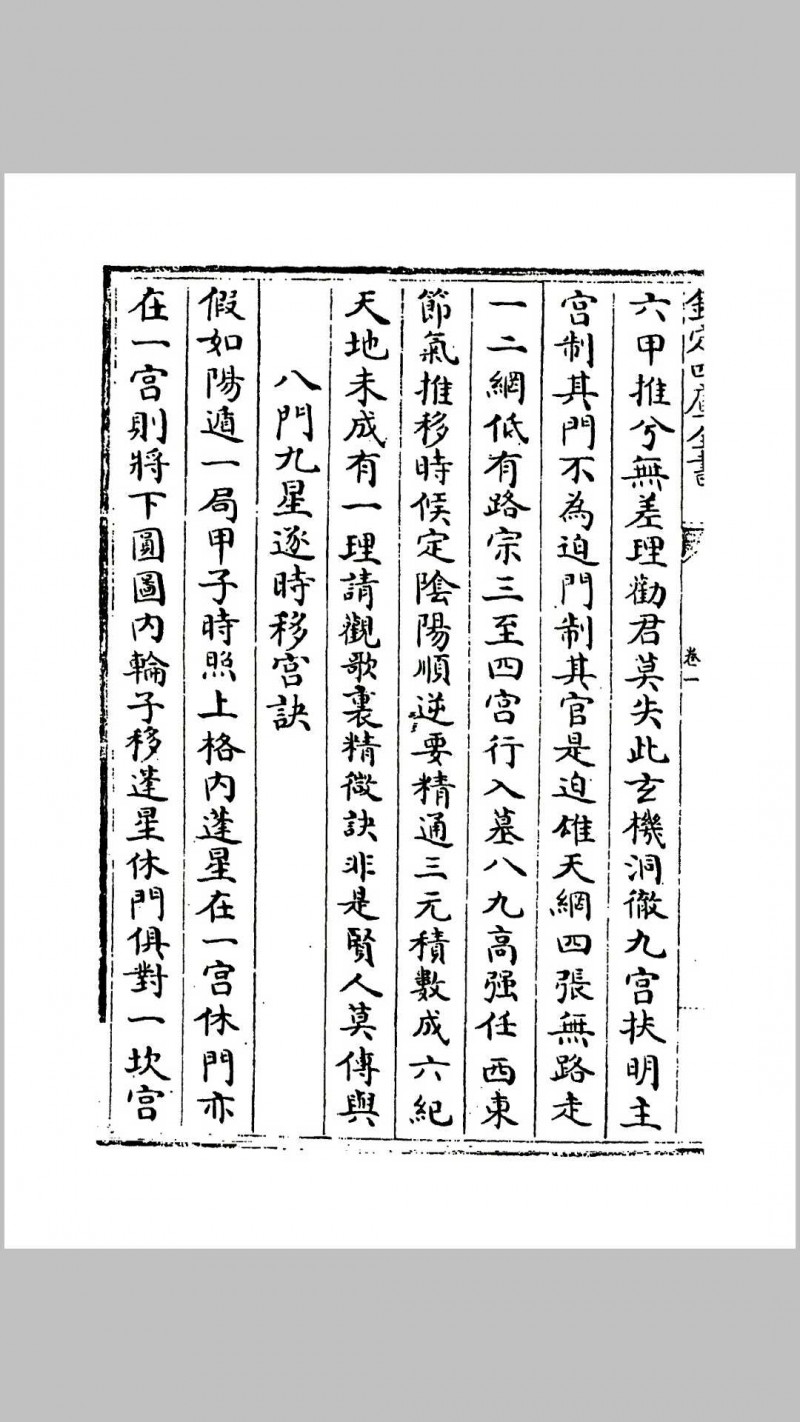 欽定四庫全書
卷一
六甲推兮無差理勸君莫失此玄機洞徹九宮扶明主
宮制其門不為迫門制其官是迫雄天網四張無路走
一二網低有路宗三至四宮行入墓八九高强任西東
節氣推移時候定陰陽順逆要精通三元積數成六紀
天地未成有一理請觀歌裏精微訣非是賢人莫傳與
八門九星逐時移宮訣
假如陽遁一局甲子時照上格内蓬星在一宮休門亦
在一宮則將下圓圖内輪子移蓬星休門俱對一坎宮